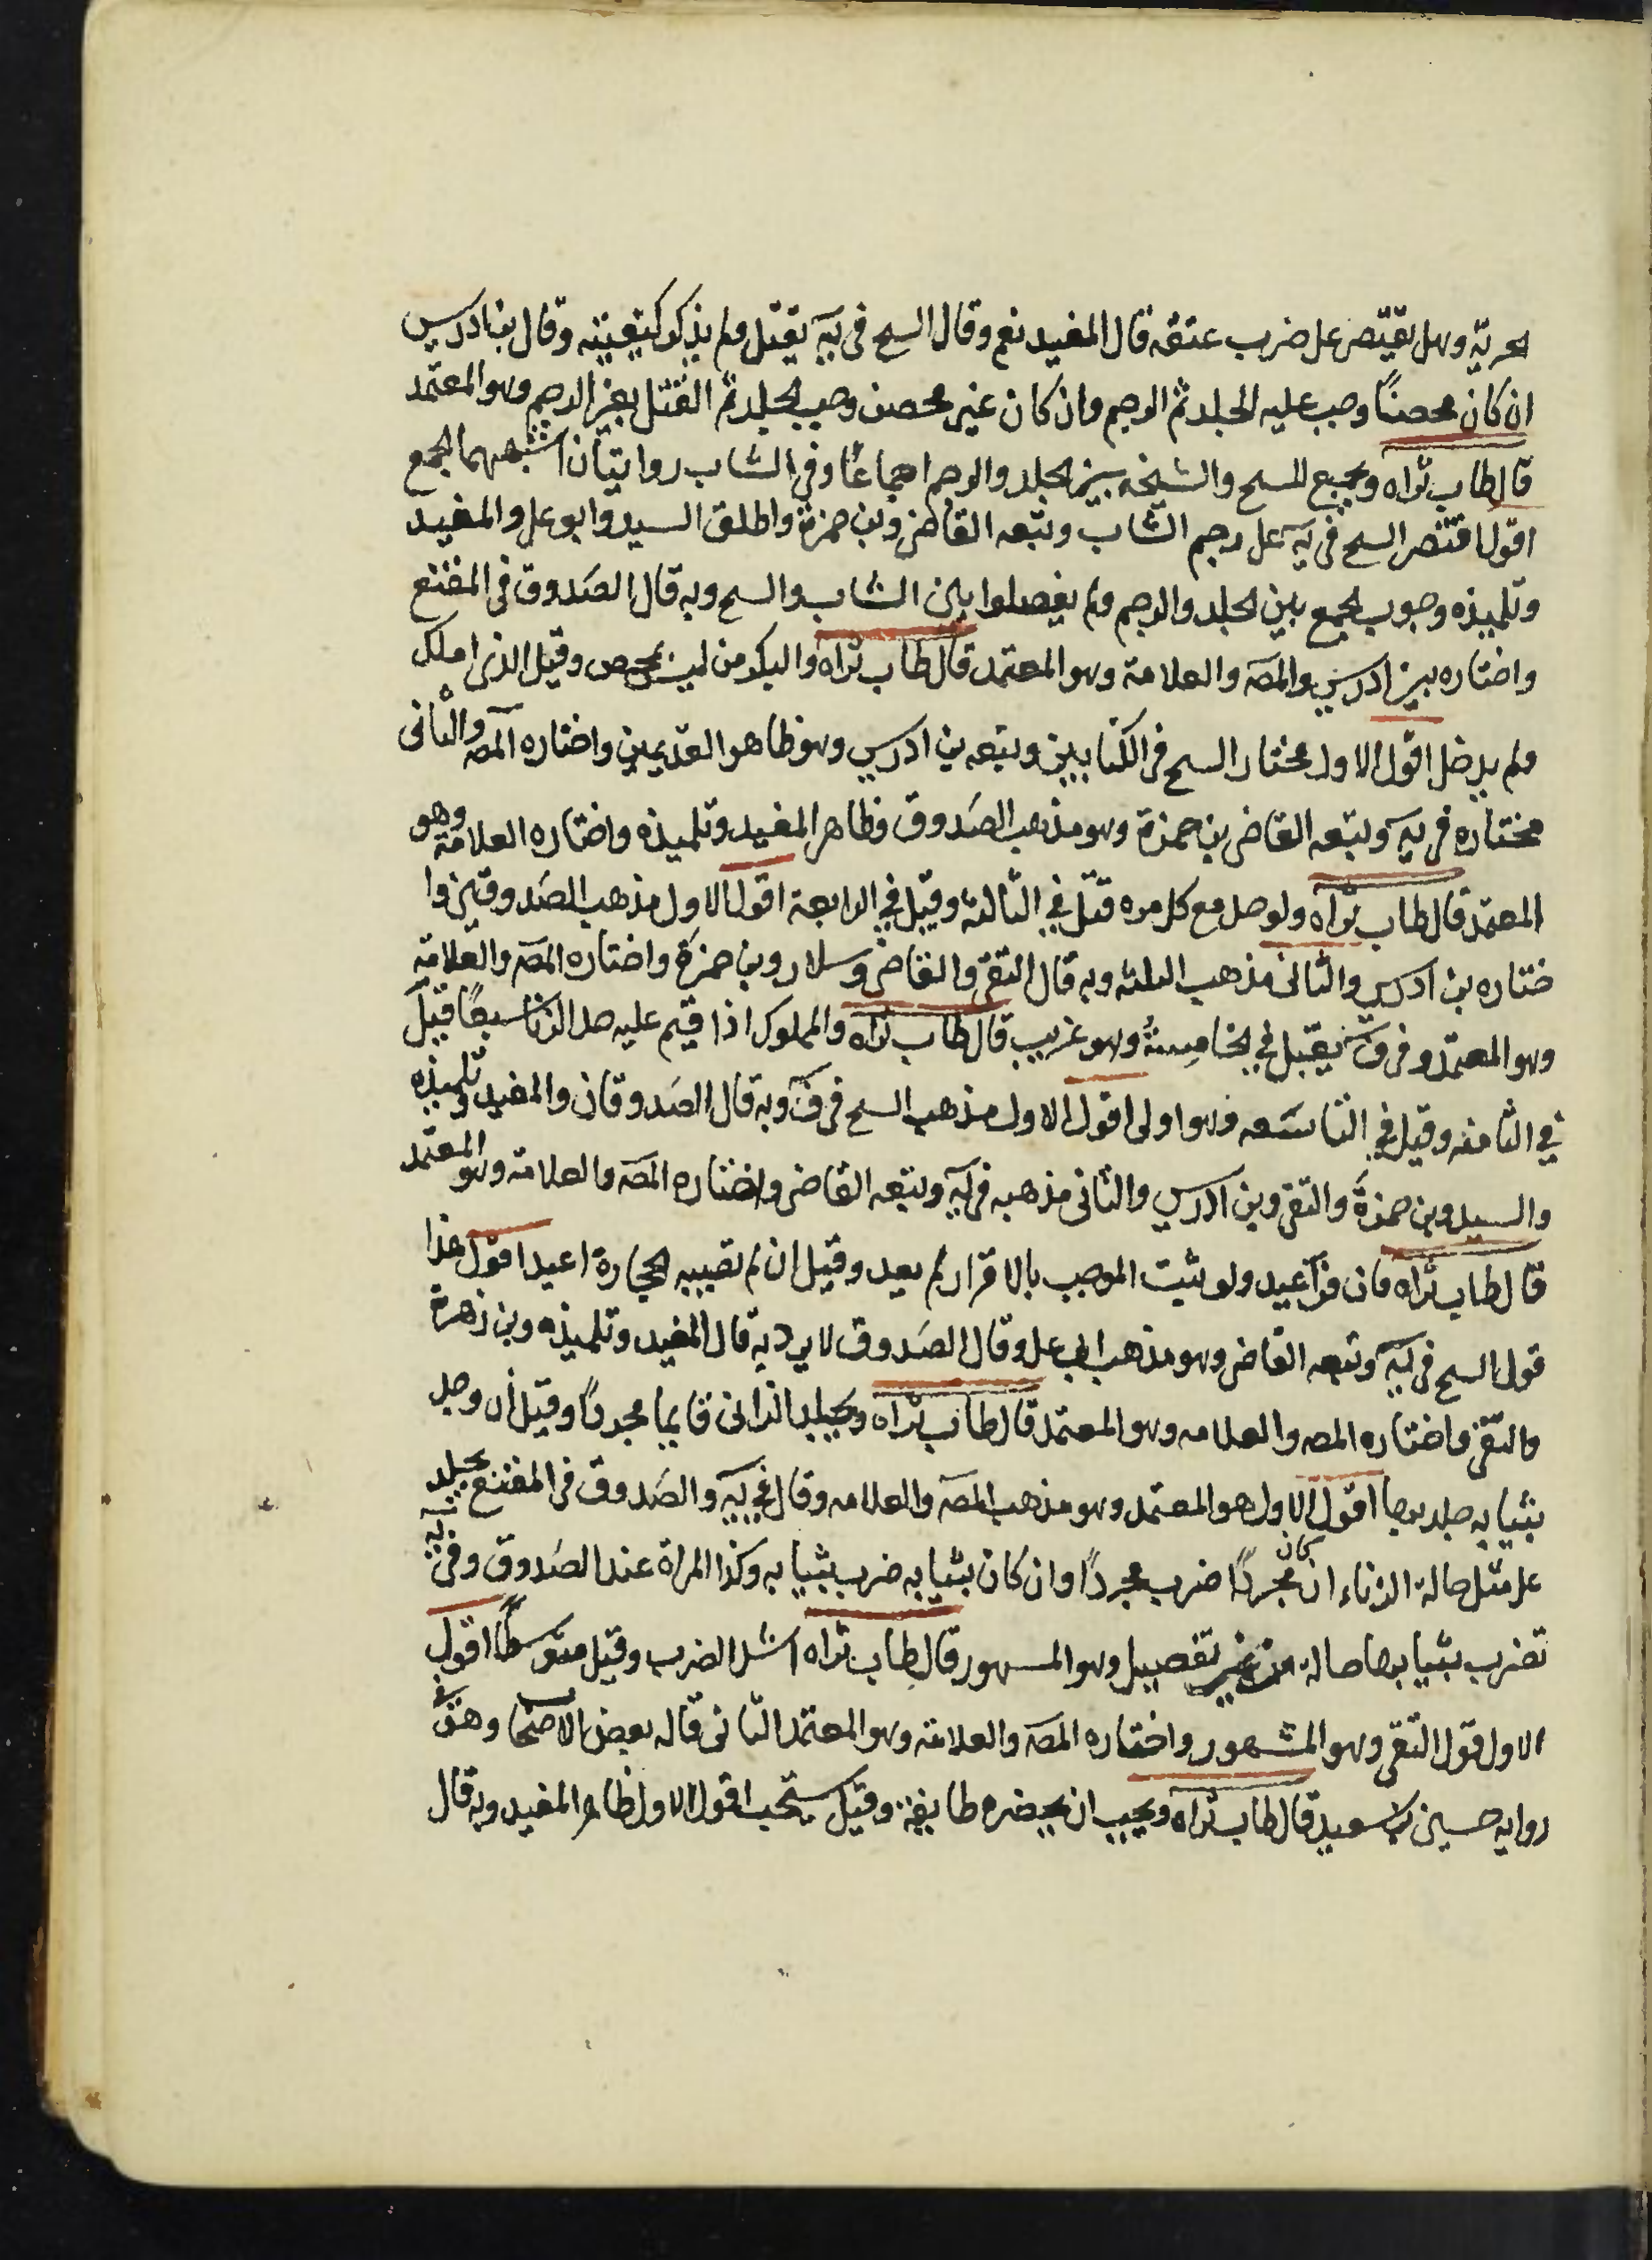 لحريّه وهل يقتصر على ضرب عنقه قال المفيد نعم وقال الشيخ فى يه يقتل ولم يذكر كيفيته وقال بن ادريس
ان كان محصناً وجب عليه الجلد ثم الرجم وان كان غير محصن وجب الجلد ثم القتل بغير الرجم وهو المعتمد
قال طاب ثراه ويجمع للشيخ والشيخه بين الجلد والرجم اجماعًا وفى الشاب روايتان اشبههما الجمع
اقول اقتصر الشيخ فى يه على رجم الشاب وتبعه القاضى وبن حمزة واطلق السيد وابو على والمفيد
وتلميذه وجوب الجمع بين الجلد والرجم ولم يفصلوا بين الشاب والشيخ وبه قال الصدوق فى المقنع
واختاره بن ادريس والمصه والعلامة وهو المعتمد قال طاب ثراه والبكر من ليس بمحصن وقيل الذى املك
ولم يدخل اقول الاول مختار الشيخ فى الكتابين وتبعه بن ادريس وهو ظاهر القديمين واختاره المصه والثانى
مختاره فى يه وتبعه القاضى بن حمزة وهو مذهب الصدوق وظاهر المفيد وتلميذه واختاره العلامة وهو
المعتمد قال طاب ثراه ولو حد مع كل مره قتل في الثالثه وقيل في الرابعة اقول الاول مذهب الصدوقين وا
ختاره بن ادريس والثانى مذهب الثلثه وبه قال التقى والقاضى وسلار وبن حمزة واختاره المصه والعلامة
وهو المعتمد وفى ف يقتل في الخامسة وهو غريب قال طاب ثراه والمملوك اذا اقيم عليه حد الزنا سبعًا قتل
في الثامنه وقيل في التاسعه وهو اولى اقول الاول مذهب الشيخ فى ف وبه قال الصدوقان والمفيد وتلميذه
والسيد وبن حمزة والتقى وبن ادريس والثانى مذهبه فى يه وتبعه القاضى واختاره المصه والعلامة وهو المعتمد
قال طاب ثراه فان فر اعيد ولو ثبت الموجب بالاقرار لم يعد وقيل ان لم تصيبه الحجارة اعيد اقول هذا
قول الشيخ فى يه وتبعه القاضى وهو مذهب ابى على وقال الصدوق لا يرد به قال المفيد وتلميذه وبن زهرة
والتقى واختاره المصه والعلامه وهو المعتمد قال طاب ثراه ويجلد الزانى قايما مجرداً وقيل ان وجد
بثيابه جلد بها اقول الاول هو المعتمد وهو مذهب المصه والعلامه وقال في يه والصدوق فى المقنع يجلد
على مثل حالة الزناء ان كان مجردًا ضرب مجردًا وان كان بثيابه ضرب بثيابه وكذا المراة عند الصدوق وفى يه
تضرب بثيابها حالة من غير تفصيل وهو المشهور قال طاب ثراه اشد الضرب وقيل متوسطًا اقول
الاول قول التقى وهو المشهور واختاره المصه والعلامة وهو المعتمد الثانى قاله بعض الاصحا وهو فى
روايه حسين بن سعيد قال طاب ثراه ويجب ان يحضره طايفة وقيل يستحب اقول الاول ظاهر المفيد وبه قال